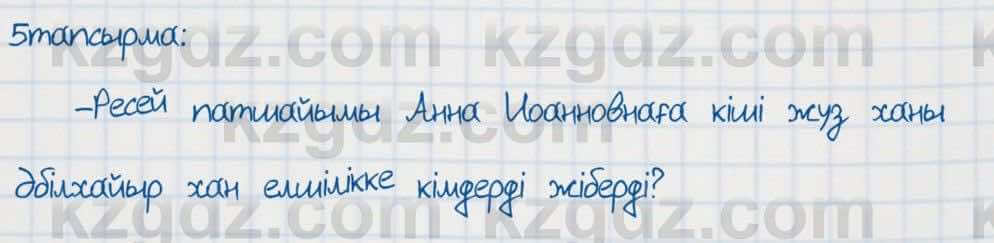 5тапсырма:
-Ресей патшайымы Анна Иоанновнаға кіші жуз ханы
Әбілхайыр хан елшілікке кімдерді жіберді?
kzgdz.com kzgdz.com
kzgdz.com
kzgdz.com kzgdz.com